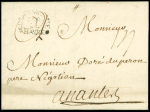 Monsieur
Monsieur Doré duperon
père Négotiant
a nantes